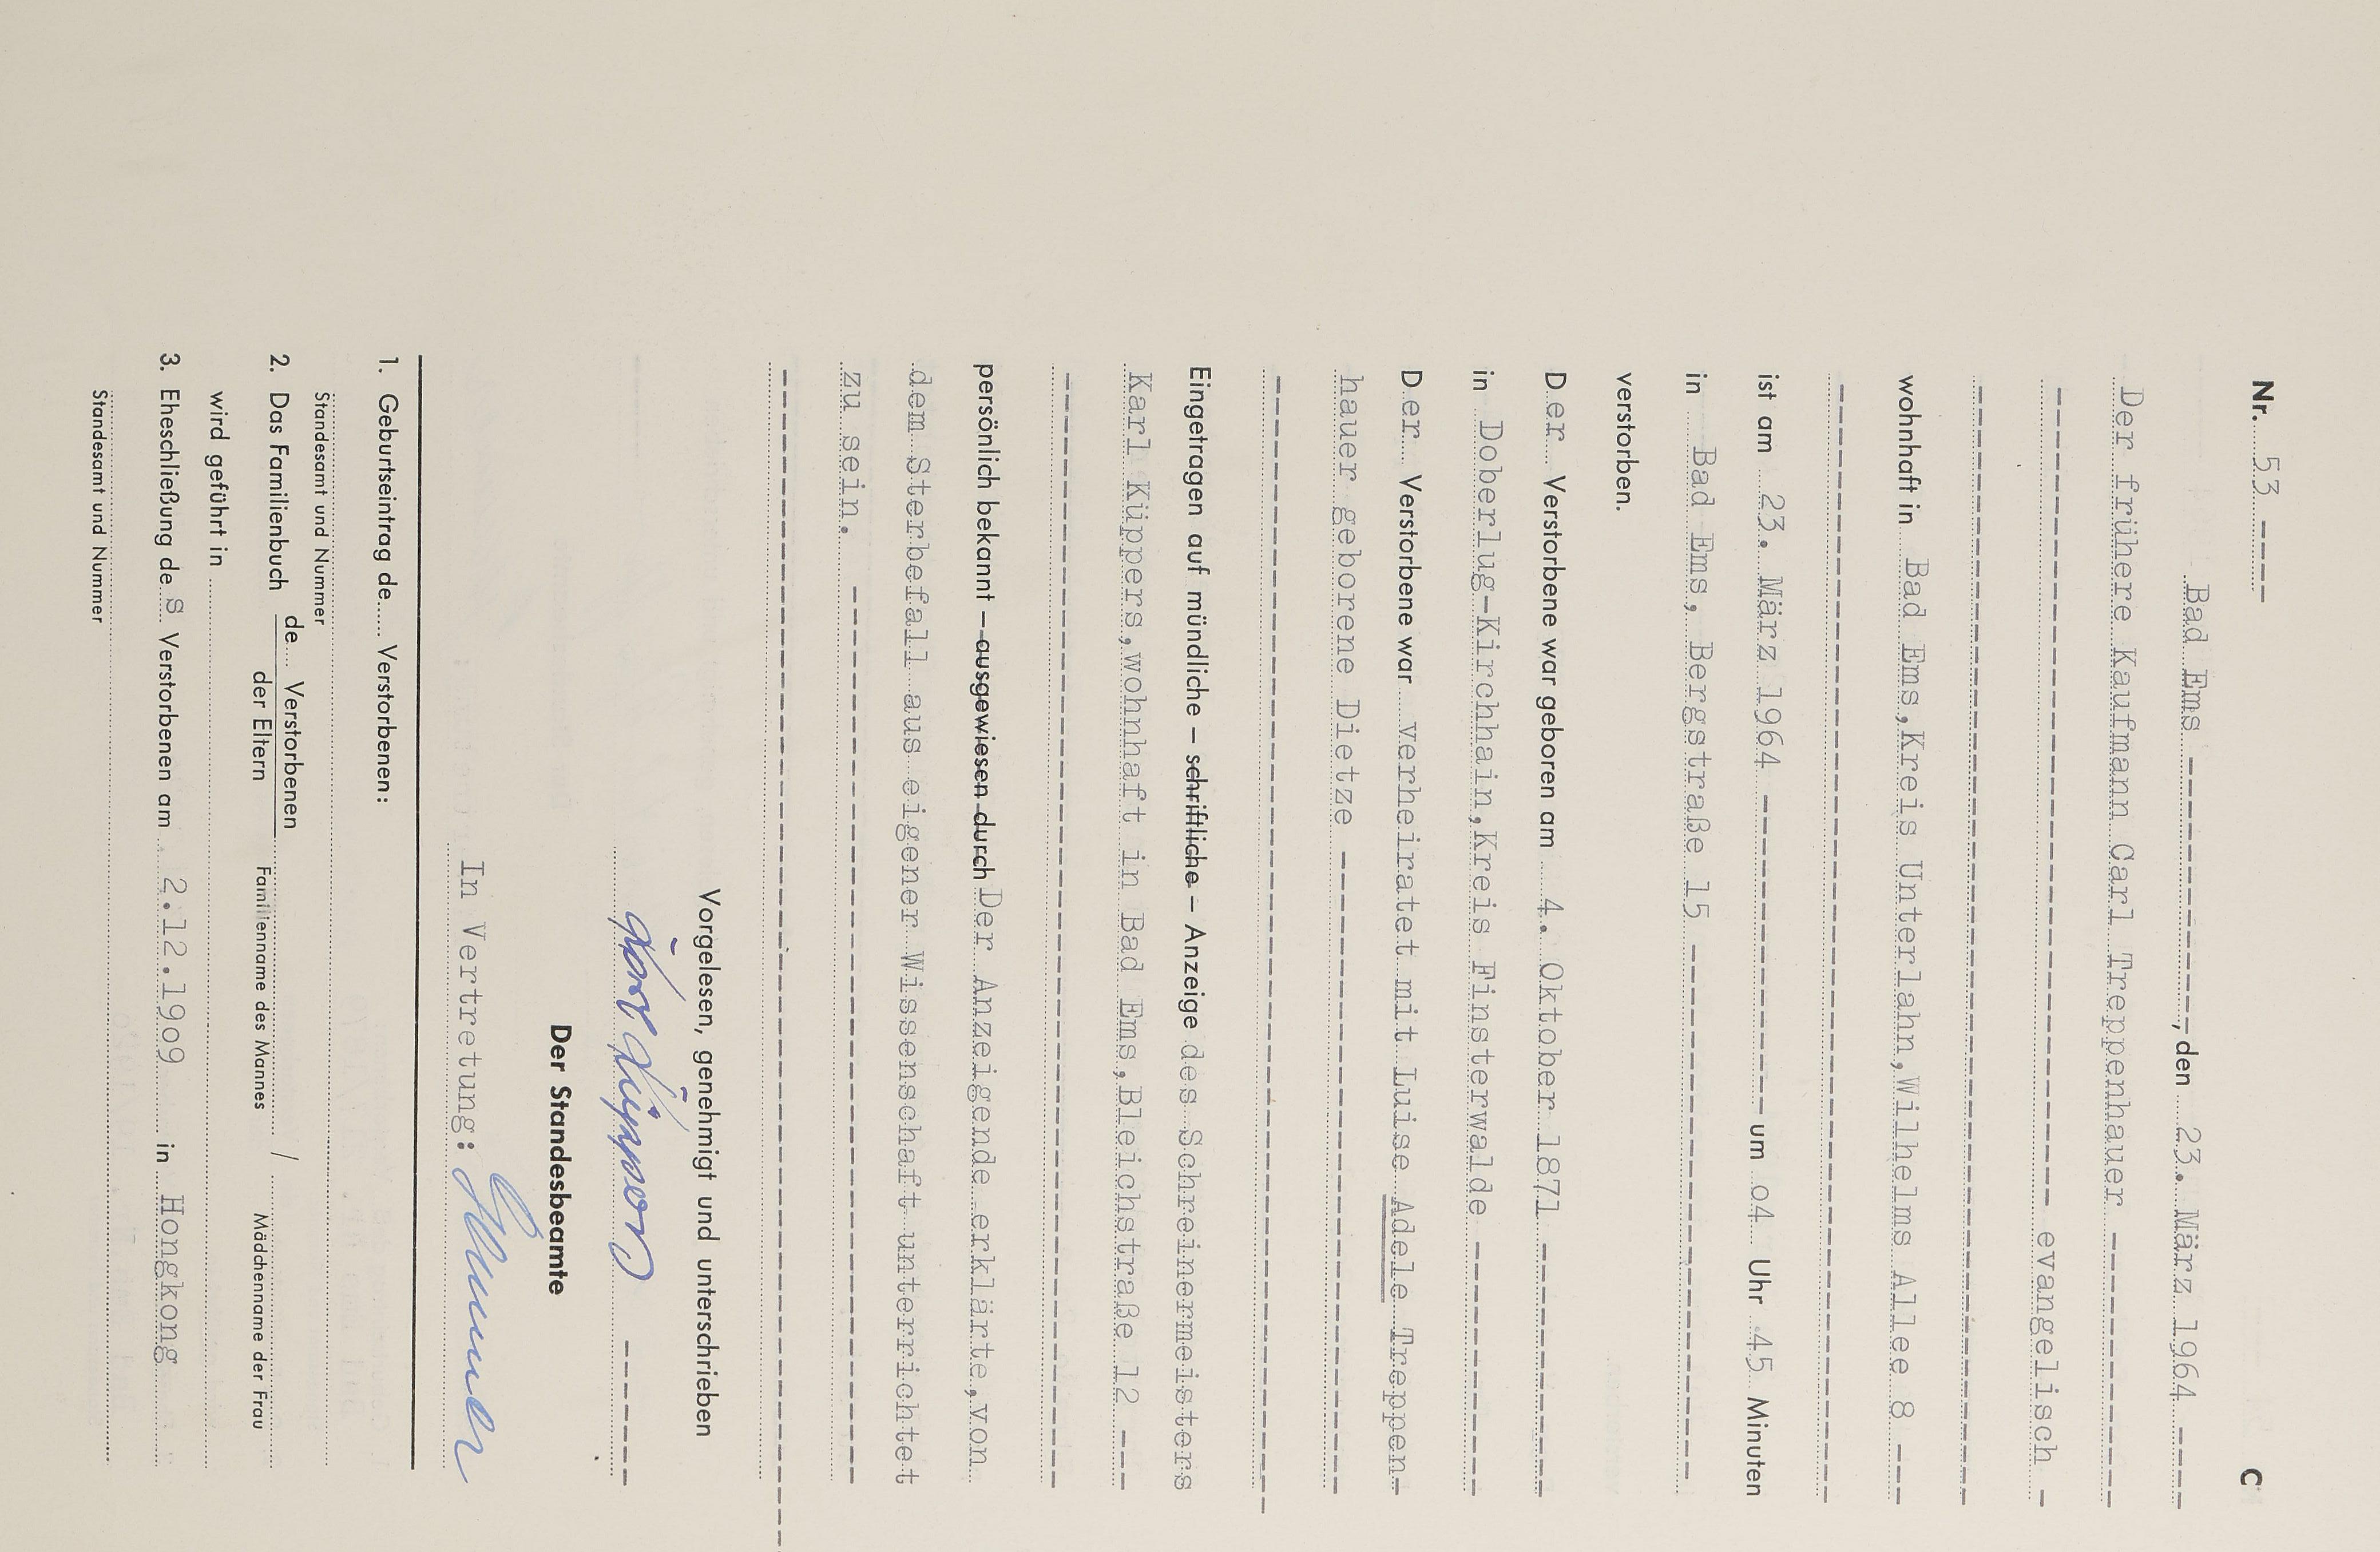 Nr. 53 ----- C
Bad Ems --------------, den 23. März 1964 -----
Der frühere Kaufmann Carl Treppenhauer ---------------
---------------------------------- evangelisch -
wohnhaft in Bad Ems,Kreis Unterlahn,Wilhelms Allee 8 ---
ist am 23. März 1964 ------------------ um o4 Uhr 45 Minuten
in Bad Ems, Bergstraße 15 -----------------------------
verstorben.
Der Verstorbene war geboren am 4. Oktober 1871 --------------
in Doberlug-Kirchhain,Kreis Finsterwalde --------------
Der Verstorbene war verheiratet mit Luise Adele Treppen-
hauer geborene Dietze -----------------------------------
Eingetragen auf mündliche – schriftliche – Anzeige des Schreinermeisters
Karl Küppers,wohnhaft in Bad Ems,Bleichstraße 12 ---
persönlich bekannt – ausgewiesen durch Der Anzeigende erklärte,von
dem Sterbefall aus eigener Wissenschaft unterrichtet
zu sein. ------------------------------------------------
Vorgelesen, genehmigt und unterschrieben
Küppers --------
Der Standesbeamte
In Vertretung:
1. Geburtseintrag de Verstorbenen:
Standesamt und Nummer
2. Das Familienbuch de Verstorbenen / der Eltern
Familienname des Mannes Mädchenname der Frau
wird geführt in
3. Eheschließung des Verstorbenen am 2.12.19o9 in Hongkong
Standesamt und Nummer